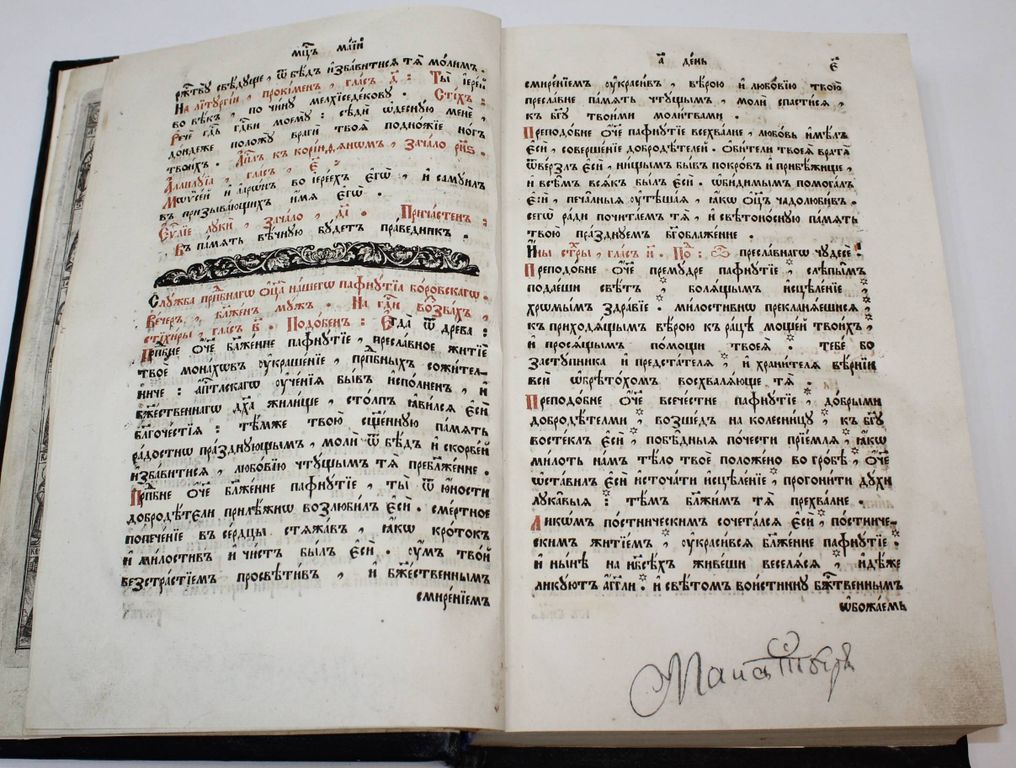 мц҃ъ маїй
рж҃твꙋ свѣдꙋще, ѿ бѣдъ и҆збавитисѧ тѧ̀ молимъ.
На литꙋргїи, прокіменъ, гласъ д҃: Ты̀ і҆ерей
во вѣкъ, по чинꙋ мелхїседековꙋ. Стїхъ:
Рече гд҃ь гд҃ви моемꙋ: сѣди ѡ҆деснꙋю мене,
дондеже положꙋ враги̑ твоѧ̀ подножїе ногъ
твоихъ. Ап҃лъ къ корїнѳѧномъ, зачало
Аллилꙋїа, гласъ, є҃:
Мѡѷсей и҆ а҆арѡнъ во і҆ереехъ є҆гѡ̀, и҆ самꙋилъ
въ призывающихъ и҆мѧ є҆гѡ̀.
Єѵ҃лїе лꙋки, зачало, Причастенъ:
Въ память вѣчнꙋю бꙋдетъ праведникъ.
Слꙋжба прпⷣбнагѡ ѻ҆ц҃а нашегѡ пафнꙋтїа боровскагѡ.
Вечеръ, блаженъ мꙋжъ. На гдⷭ҇и воззвахъ,
стїхиры, гласъ в҃. Подобенъ: Є҆гда̀ ѿ древа:
Прпⷣбне ѻ҆ч҃е бл҃женне пафнꙋтїе, преславное житїе
твое монахѡвъ ѹ҆крашенїе, прпⷣбныхъ сожител-
ниче: а҆пⷭ҇тлскагѡ ѹ҆ченїѧ бывъ и҆сполненъ, и҆
бж҃ественнагѡ дх҃а жилище, столпъ ꙗ҆висѧ є҆сѝ
бл҃гочестїѧ: тѣмже твою сщ҃еннꙋю память
радостнѡ празднꙋющымъ, молѝ ѿ бѣдъ и҆ скорбей
и҆збавитисѧ, любовїю чтꙋщымъ тѧ̀ пребл҃женне.
Прпⷣбне ѻ҆ч҃е бл҃женне пафнꙋтїе, ты̀ ѿ ю҆ности
добродѣтели прилѣжнѡ возлюбилъ є҆сѝ. смертное
попеченїе въ сердцы стѧжавъ, ꙗ҆кѡ кротокъ
и҆ милостивъ и҆ чистъ былъ є҆сѝ. ѹ҆мъ твой
безстрастїемъ просвѣтивъ, и҆ бж҃ественнымъ
смиренїемъ
а҃ день є҃
смиренїемъ ѹ҆красивъ, вѣрою и҆ любовїю твою
преславне память чтꙋщымъ, молѝ спастисѧ,
къ бг҃ꙋ твоими молитвами.
Преподобне ѻ҆ч҃е пафнꙋтїе всехвалне, любовь и҆мѣлъ
є҆сѝ, совершенїе добродѣтелей. ѻ҆бители твоеѧ̀ врата̀
ѿверзлъ є҆сѝ, нищымъ бывъ покровъ и҆ прибѣжище,
и҆ всѣмъ всѧкъ былъ є҆сѝ. ѡ҆бидимымъ помогалъ
є҆сѝ, печалныѧ ѹ҆тѣшаѧ, ꙗ҆кѡ ѻ҆ц҃ъ чадолюбивъ.
сегѡ̀ ради почитаемъ тѧ̀, и҆ свѣтоноснꙋю память
твою празднꙋемъ бг҃облаженне.
И҆ны стх҃ры, гласъ и҃. Поⷣ: Ѽ преславнагѡ чꙋдесе!
Преподобне ѻ҆ч҃е премꙋдре пафнꙋтїе, слѣпымъ
подаеши свѣтъ, болѧщымъ и҆сцѣленїе
хрѡмымъ здравїе. милостивнѡ преклонѧешисѧ
къ приходѧщымъ вѣрою къ рацѣ мощей твоихъ,
и҆ просѧщымъ помощи твоеѧ̀. тебе бо
застꙋпника и҆ предстателѧ, и҆ хранителѧ вѣрнїи
всѝ ѡ҆брѣтохомъ восхвалѧюще тѧ̀.
Преподобне ѻ҆ч҃е всечестне пафнꙋтїе, добрыми
добродѣтелми, возшедъ на колесницꙋ, къ бг҃ꙋ
востеклъ є҆сѝ, побѣдныѧ почести прїемлѧ, ꙗ҆кѡ
милоть намъ тѣло твое положено во гробѣ, ѻ҆ч҃е
ѡ҆ставилъ є҆сѝ и҆сточати и҆сцѣленїе, прогонити дꙋхи
лꙋкавыѧ: тѣмъ бл҃жимъ тѧ̀ прехвалне.
Ликѡмъ постническимъ сочеталсѧ є҆сѝ, постниче-
скимъ житїемъ, ѹ҆красивсѧ бл҃женне пафнꙋтїе.
и҆ нынѣ на нб҃сѣхъ живеши веселѧсѧ, и҆дѣже
ликꙋютъ а҆гг҃ли. и҆ свѣтомъ воистинꙋ бж҃твеннымъ
ѡ҆божаемь